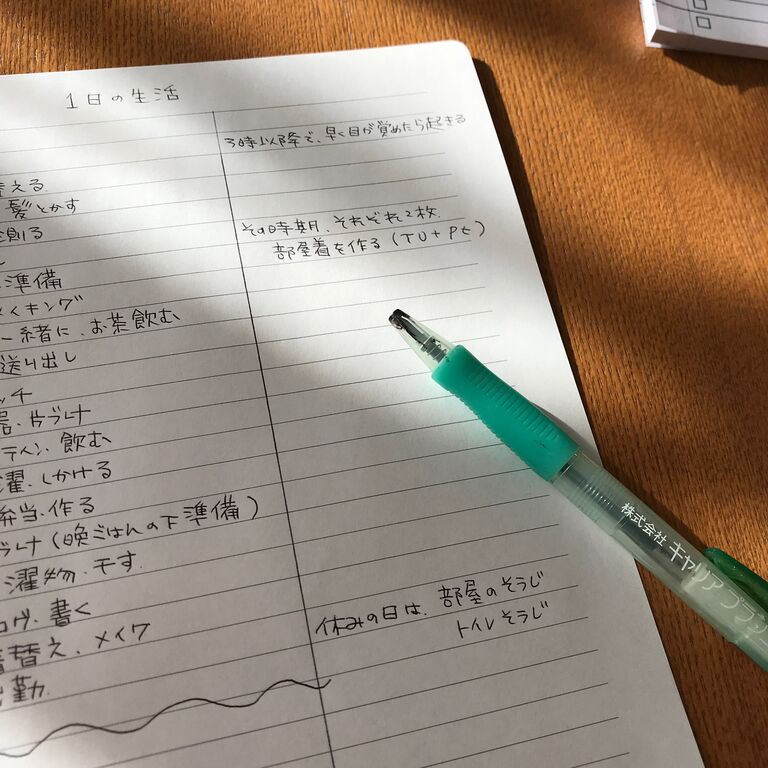 1日の生活
3時以降で、早く目が覚めたら起きる
替える
髪とかす
測る
その時期、それぞれ2枚
部屋着を作る(TU+Pt)
準備
メイキング
一緒に、お茶飲む
送り出し
ッチ
器、片づけ
テイン、飲む
濯、しかける
弁当、作る
づけ(晩ごはんの下準備)
濯物、干す
ログ、書く
着替え、メイク
出勤
休みの日は、部屋のそうじ
トイレそうじ
株式会社 キャリアプラン